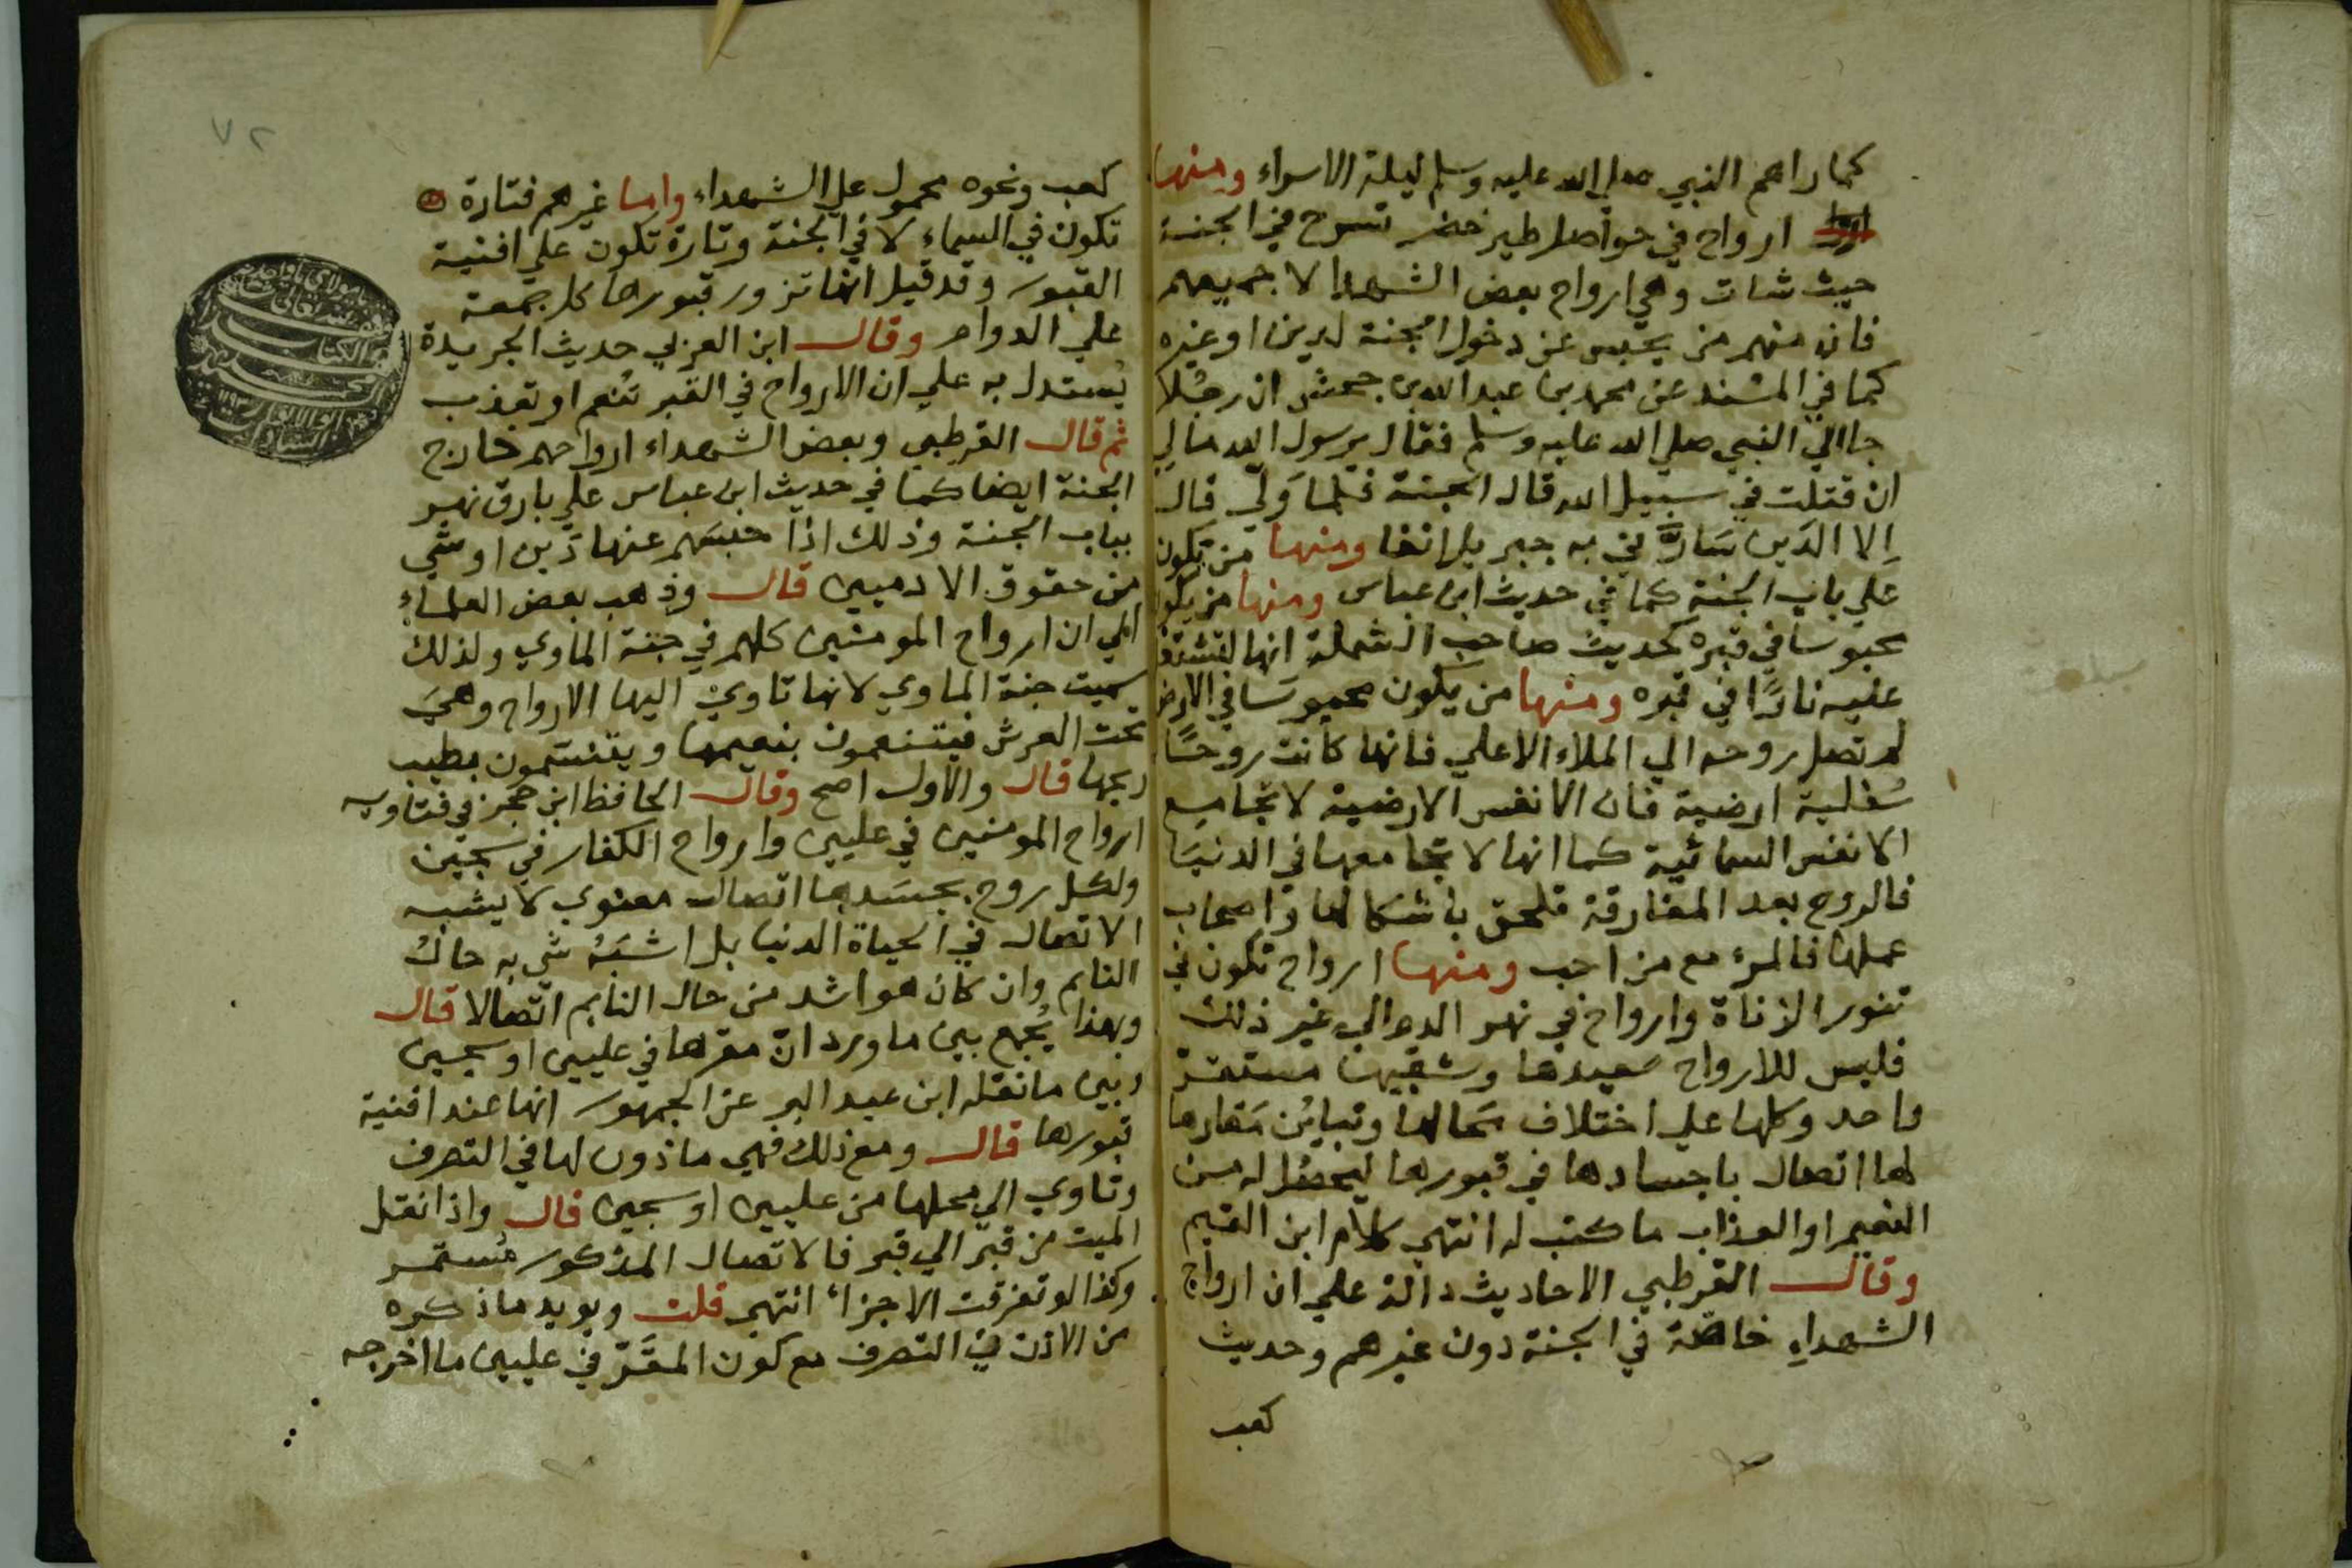 كما راهم النبي صلى الله عليه وسلم ليلة الاسراء ومنها
ارواح في حواصل طير خضر تسرح في الجنة
حيث شات وهي ارواح بعض الشهدا لا جميعهم
فان منهم من يحبس عن دخول الجنة لدين او غيره
كما في المسند عن محمد بن عبد الله بن جحش ان رجُلا
جا الي النبي صلي الله عليه وسلم فقال يرسول الله مالي
ان قتلت في سبيل الله قال الجنة فلما وَلي قال
اِلا الدَين سَارَّني به جبريل انفا ومنها من يكون
علي باب الجنة كما في حديث ابن عباس ومنها من يكون
محبوسا في قبره كحديث صاحب الشملة انها لتشتعل
عليه نارًا في قبره ومنها من يكون محبوسَا في الارض
لم تصل روحه الي الملاء الاعلي فانها كانت روحًا
سُفلية ارضية فان الانفس الارضية لا تجامع
الانفس السمائية كما انها لا تجامعها في الدنيَا
فالروح بعد المفارقة تلحق باشكالها واصحاب
عملها فالمرء مع من احب ومنها ارواح تكون في
تنور الزناة وارواح في نهر الدم الي غير ذلك
فليس للارواح سعيدها وشقيها مستقرّ
واحد وكلها علي اختلاف محالها وتباين مَقارها
لها اتصال باجسادها في قبورها ليحصُل له من
النعيم او العذاب ما كتب له انتهي كلام ابن القيم
وقال القرطبي الاحاديث دالة علي ان ارواح
الشهداءِ خاصّة في الجنة دون غيرهم وحديث
كعب
٧٢
كعب ونحوه محمول علي الشهداء واما غيرهم فتارة
تكون في السماء لا في الجنة وتارة تكون علي افنية
القبور وقد قيل انها تزور قبورها كل جمعة
علي الدوام وقال ابن العربي حديث الجريدة
يُستدل به علي ان الارواح في القبر تنُعم او تعذب
ثم قال القرطبي وبعض الشهداء ارواحهم خارج
الجنة ايضا كما في حديث ابن عباس علي بارق نهر
بباب الجنة وذلك اذا حبسَهم عنها دَين او شي
من حقوق الادميين قال وذهب بعض العلماء
الي ان ارواح المومنين كلهم في جنة الماوي ولذلك
سميت جنة الماوي لانها تاوي اليها الارواح وهيَ
تحت العرش فيتنعمون بنعيمها ويتنسَمون بطيب
ريحها قال والاول اصح وقال الحافظ ابن حجر في فتاويه
ارواح المومنين في عليين وارواح الكفار في سجين
ولكل روح بجسَدها اتصال معنوي لا يشبه
الاتصال في الحياة الدنيا بل اشبَهُ شي به حالُ
النايم وان كان هو اشد من حال النايم اتّصالا قال
وبهذا يُجمع بين ما ورد انّ مقرها في عليين او سجين
وبين ما نقله ابن عبد البر عن الجمهور انها عند افنية
قبورها قال ومع ذلك فهي ماذون لها في التصرف
وتاوي الي محلها من عليين او سجين قال واذا نقل
الميت من قبر الي قبر فالاتصال المذكور مُستمر
وكذا لو تفرقت الاجزاء انتهي قلت ويويد ما ذكره
من الاذن في التصرف مع كون المقَرّ في عليين ما اخرجه